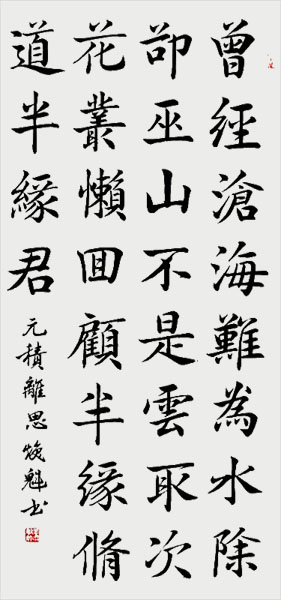 曾經滄海難為水除
卻巫山不是雲取次
花叢懶囬顧半緣脩
道半緣君
元稹離思焕魁书